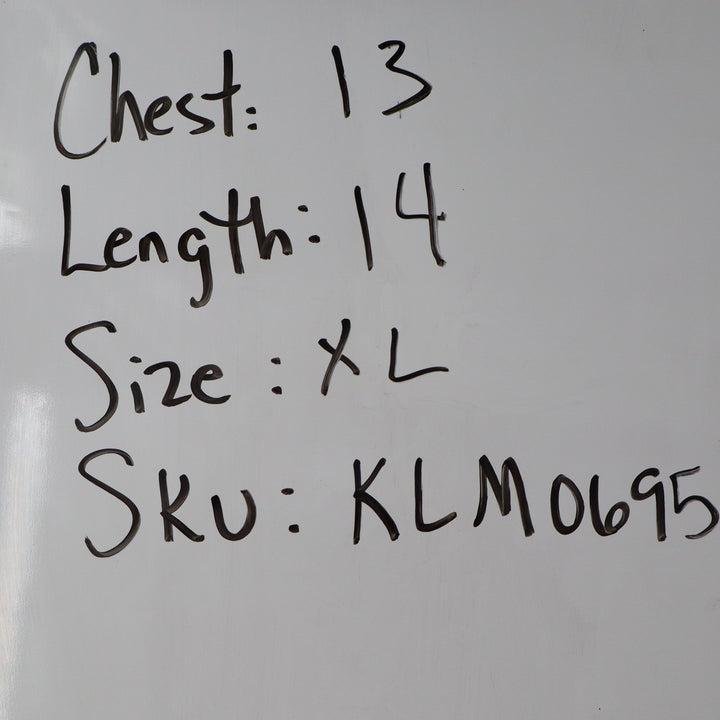 Chest: 13
Length: 14
Size: XL
SKU: KLM0695